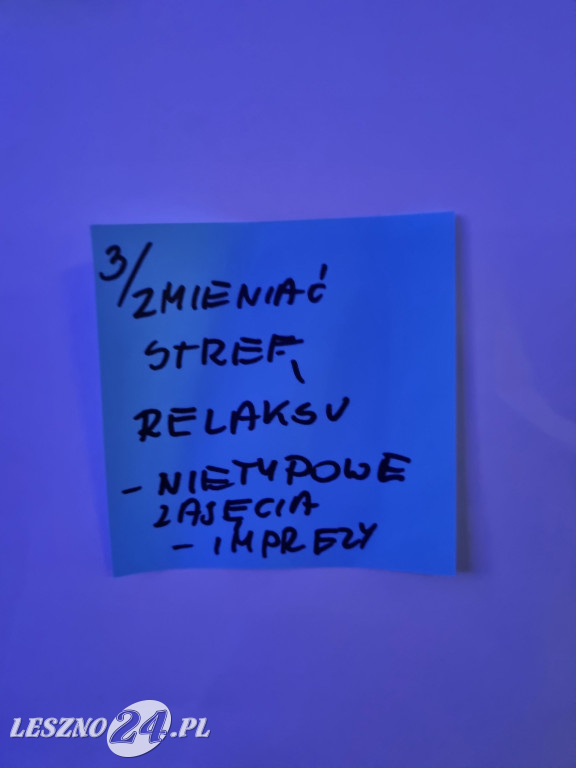 3/ ZMIENIAĆ
STREFĘ
RELAKSU
- NIETYPOWE
ZAJĘCIA
- IMPREZY
LESZNO24.PL